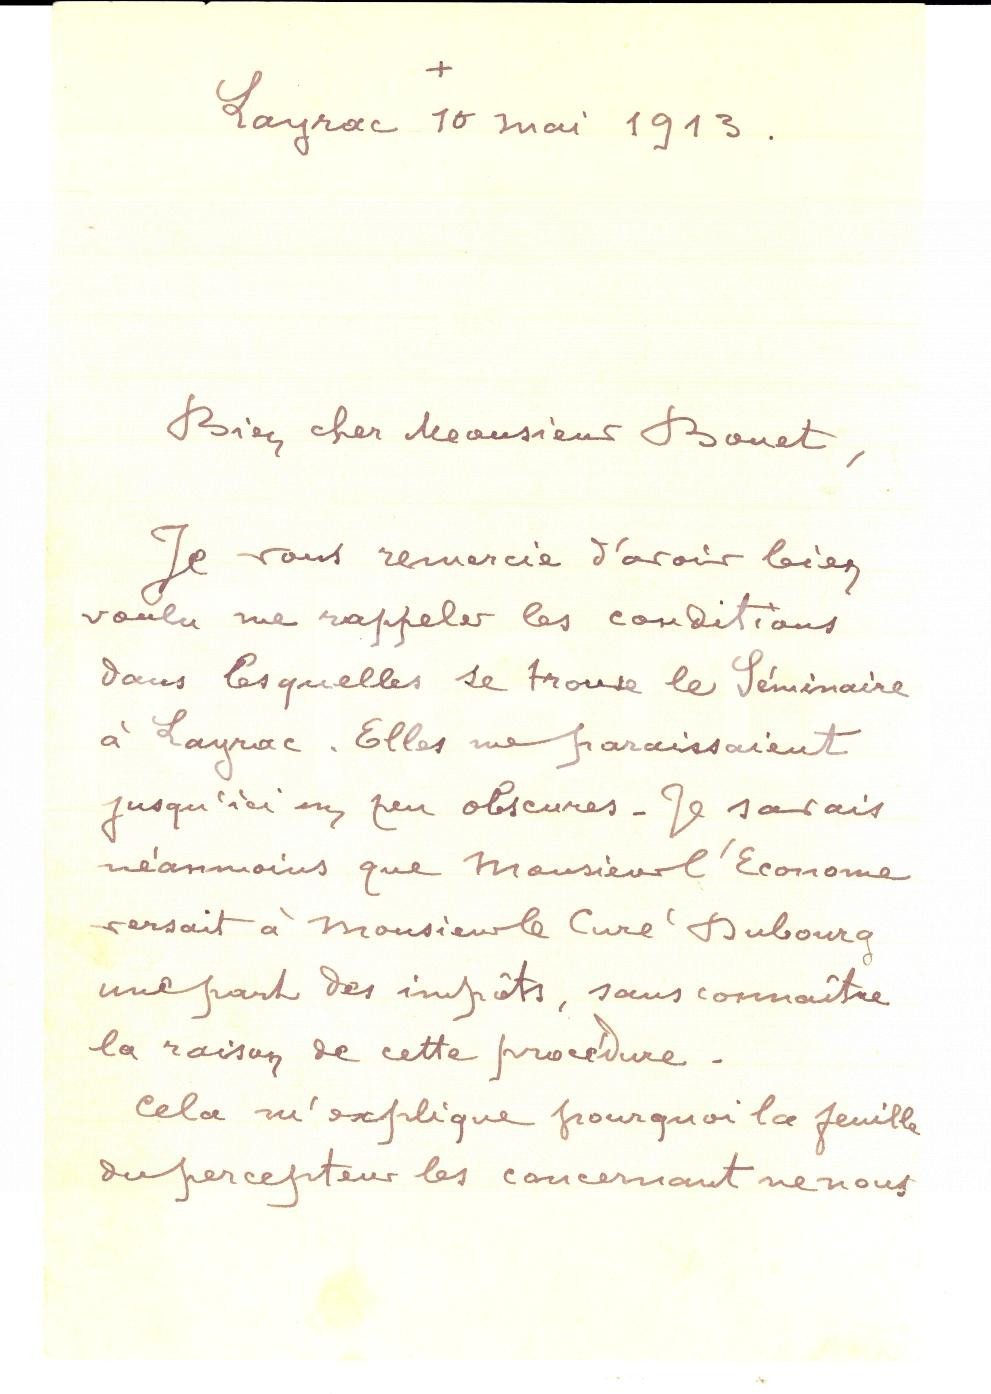 +
Layrac 10 mai 1913.
Bien cher Monsieur Bouet,
Je vous remercie d'avoir bien
voulu me rappeler les conditions
dans lesquelles se trouve le Séminaire
à Layrac. Elles me paraissaient
jusqu'ici un peu obscures - Je savais
néanmoins que Monsieur l'Econome
versait à Monsieur le Curé Dubourg
une part des impôts, sans connaître
la raison de cette procédure -
Cela m'explique pourquoi la feuille
du percepteur les concernant ne nous